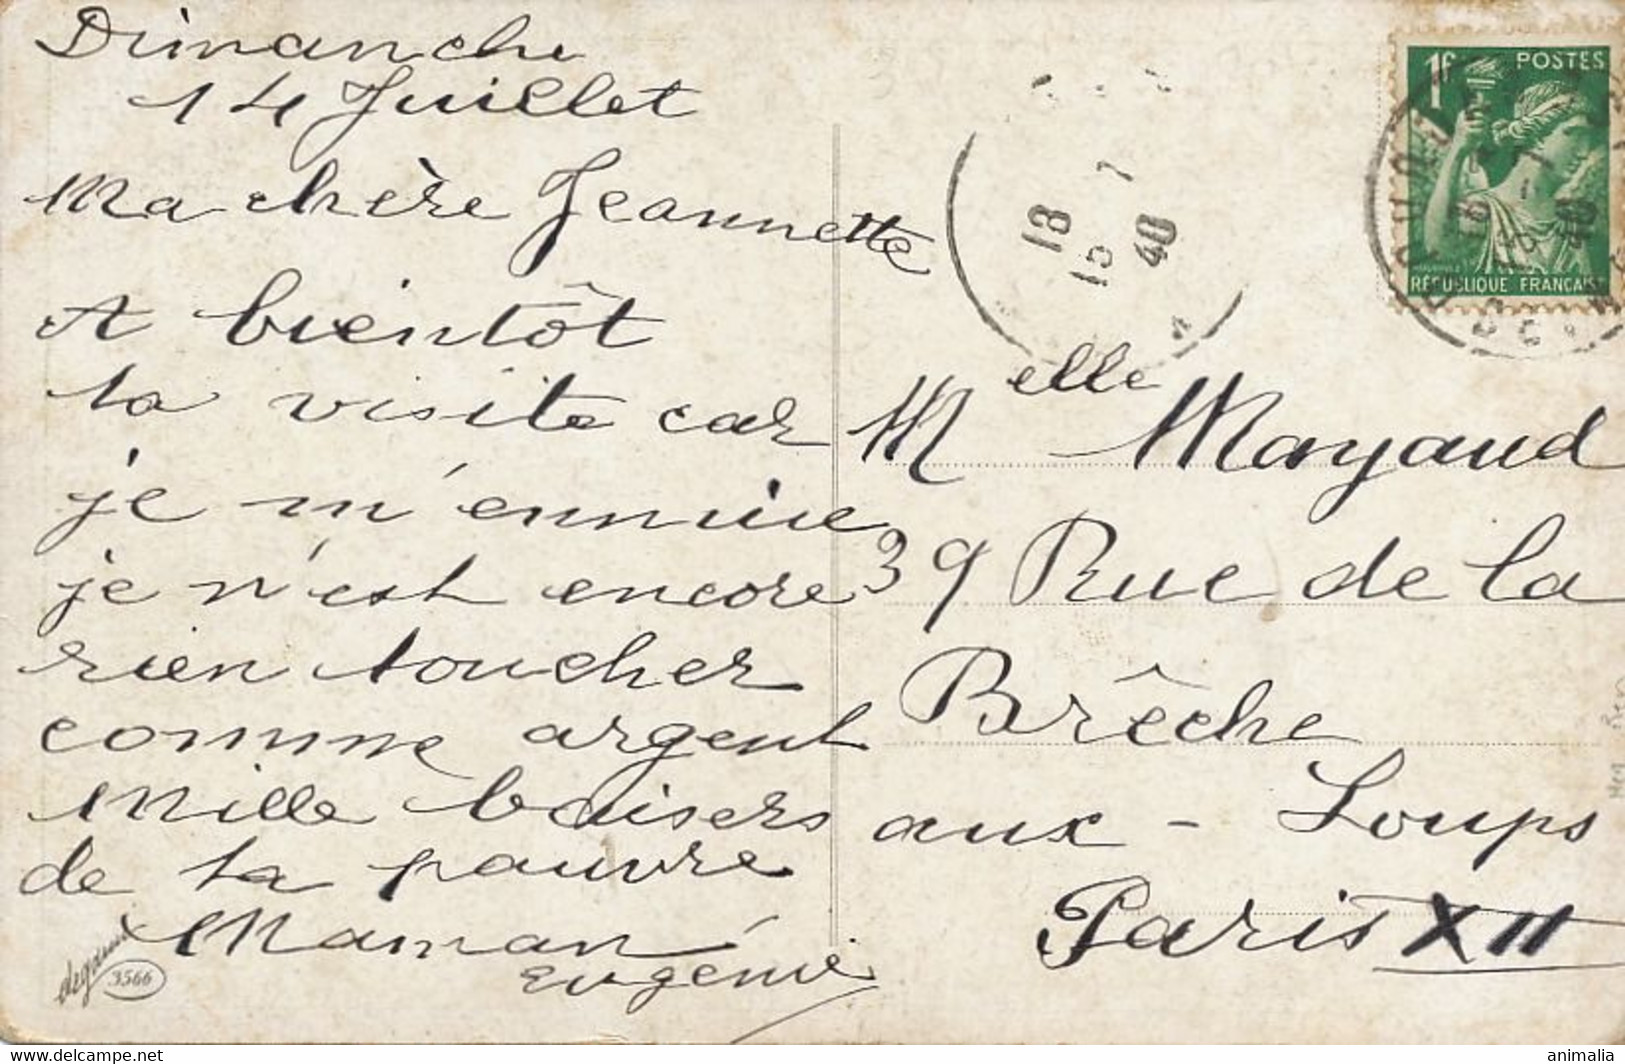 Dimanche
14 Juillet
Ma chère Jeannette
A bientôt
ta visite car
je m'ennuie
je n'est encore
rien toucher
comme argent
Mille baisers
de ta pauvre
Maman
Eugénie
3566
1F POSTES
RÉPUBLIQUE FRANÇAISE
18
15 7
40
Melle Mayaud
39 Rue de la
Brêche
aux - Loups
Paris XII
Delcampe.net
animalia